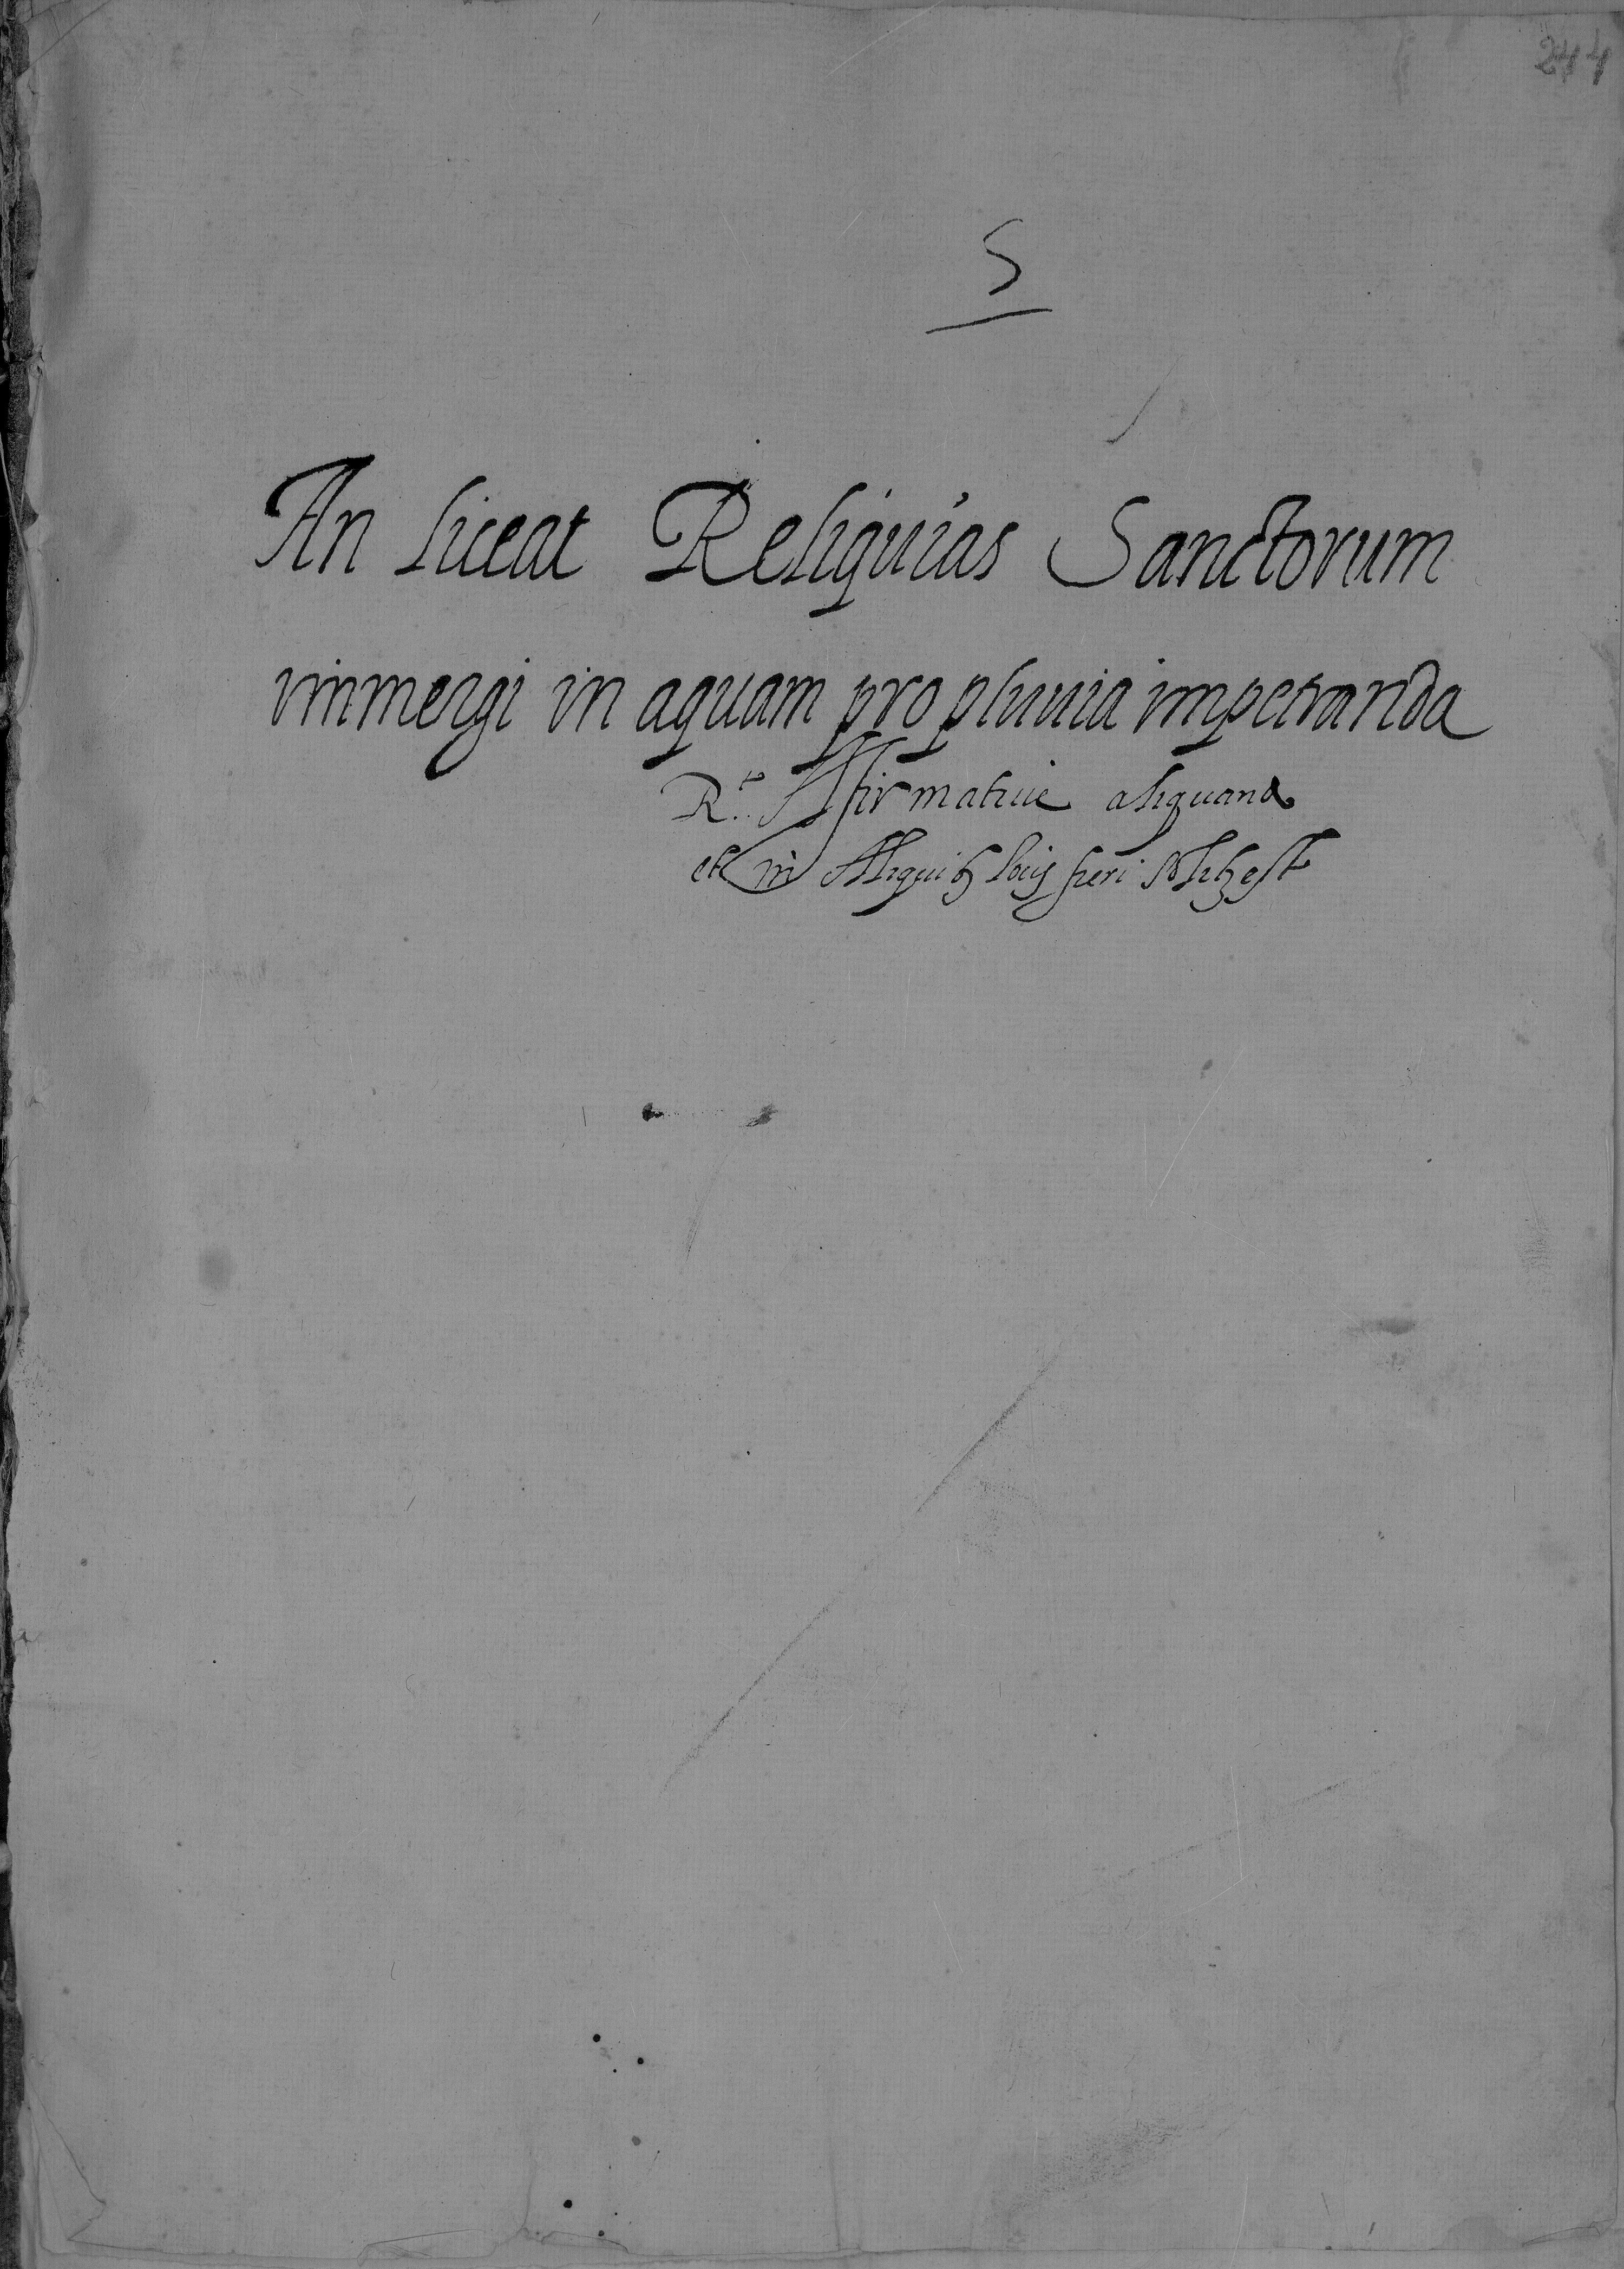 244
5
An liceat Reliquias Sanctorum
immergi in aquam pro pluuia impetranda
R.to Affirmatiue aliquando
et in Aliquib9 locis fieri solitz est